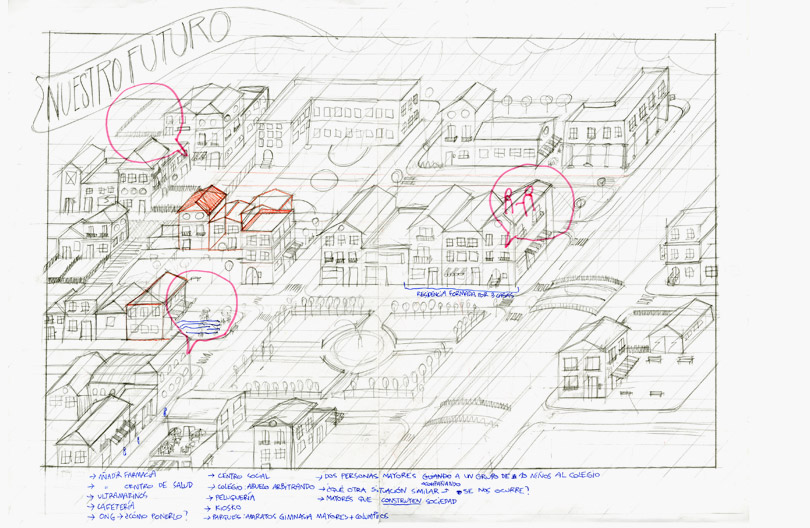 NUESTRO FUTURO
RESIDENCIA FORMADA POR 3 CASAS
→ AÑADIR FARMACIA
→ " CENTRO DE SALUD
→ ULTRAMARINOS
→ CAFETERÍA
→ ONG → ¿CÓMO PONERLO?
→ CENTRO SOCIAL
→ COLEGIO ABUELO ARBITRANDO
→ PELUQUERÍA
→ KIOSKO
→ PARQUES APARATOS GIMNASIA MAYORES + COLUMPIOS
→ DOS PERSONAS MAYORES GUIANDO A UN GRUPO DE 10 NIÑOS AL COLEGIO
ACOMPAÑANDO
→ ¿QUÉ OTRA SITUACIÓN SIMILAR → SE NOS OCURRE?
→ MAYORES QUE CONSTRUYEN SOCIEDAD